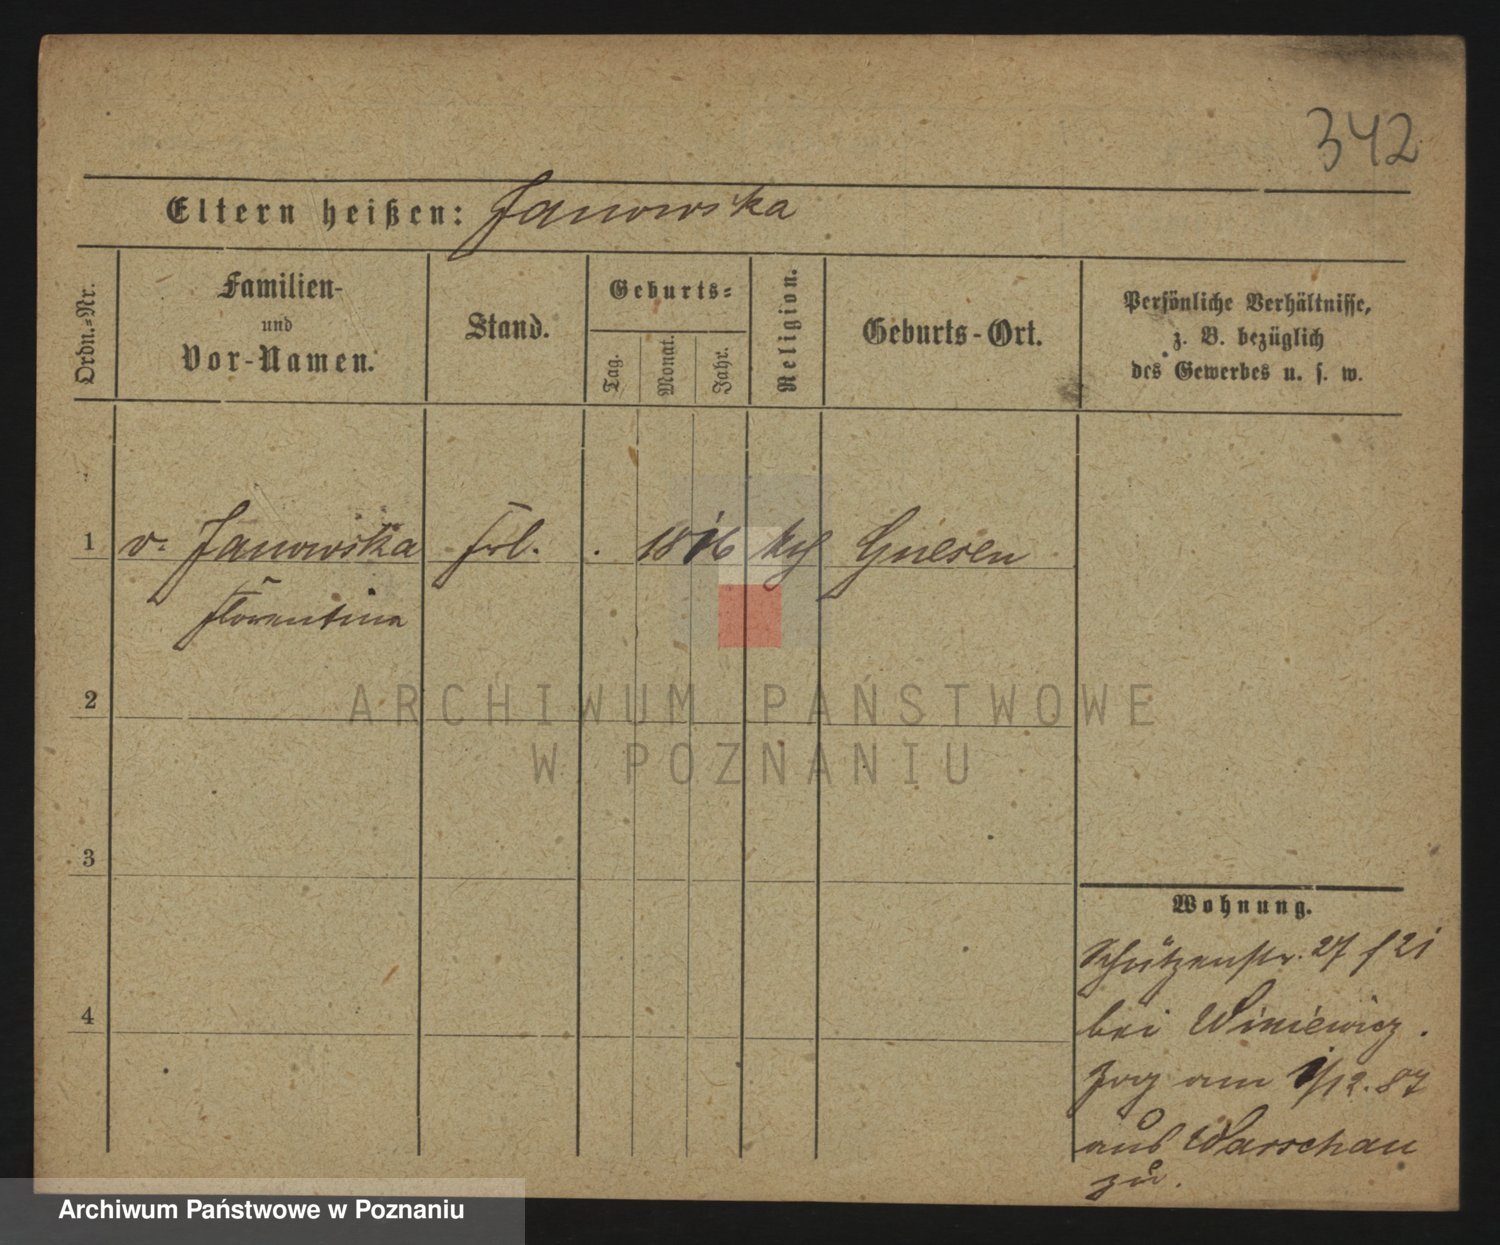 342
Eltern heißen: Janowska
Ordn.-Nr.
Familien-
und
Vor-Namen.
Stand.
Geburts-
Tag.
Monat.
Jahr.
Religion.
Geburts-Ort.
Persönliche Verhältnisse,
z. B. bezüglich
des Gewerbes u. s. w.
1 v. Janowska Frl. 1816 kth Gnesen
Florentina
2
3
4
Wohnung.
Schützenstr. 27 f 21
bei Winiewicz.
Zog am 1/12.87
aus Warschau
zu.
ARCHIWUM PAŃSTWOWE
W POZNANIU
Archiwum Państwowe w Poznaniu